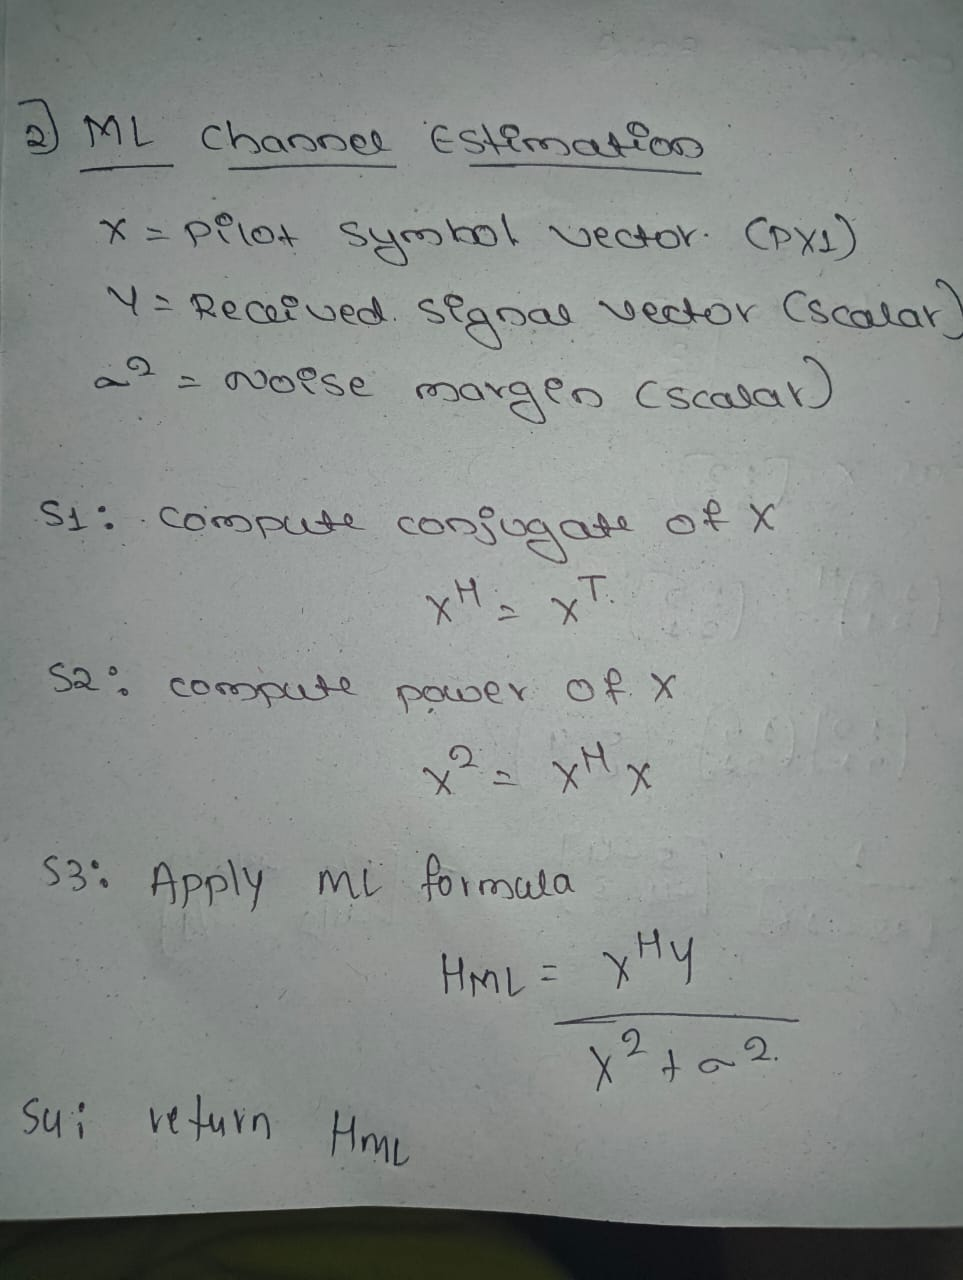 2) ML Channel Estimation
X = Pilot symbol vector. (PX1)
Y = Received. signal vector (scalar)
σ² = Noise margin (scalar)
S1: compute conjugate of X
X^H = X^T.
S2: compute power of X
X² = X^H X
S3: Apply ML formula
HML = X^H Y
X² + σ².
S4: return HML